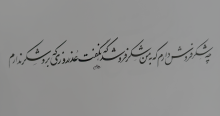 چه شکرفروش دارم که به من شکر فروشد که نگفت عذر روزی که برو شکر ندارم